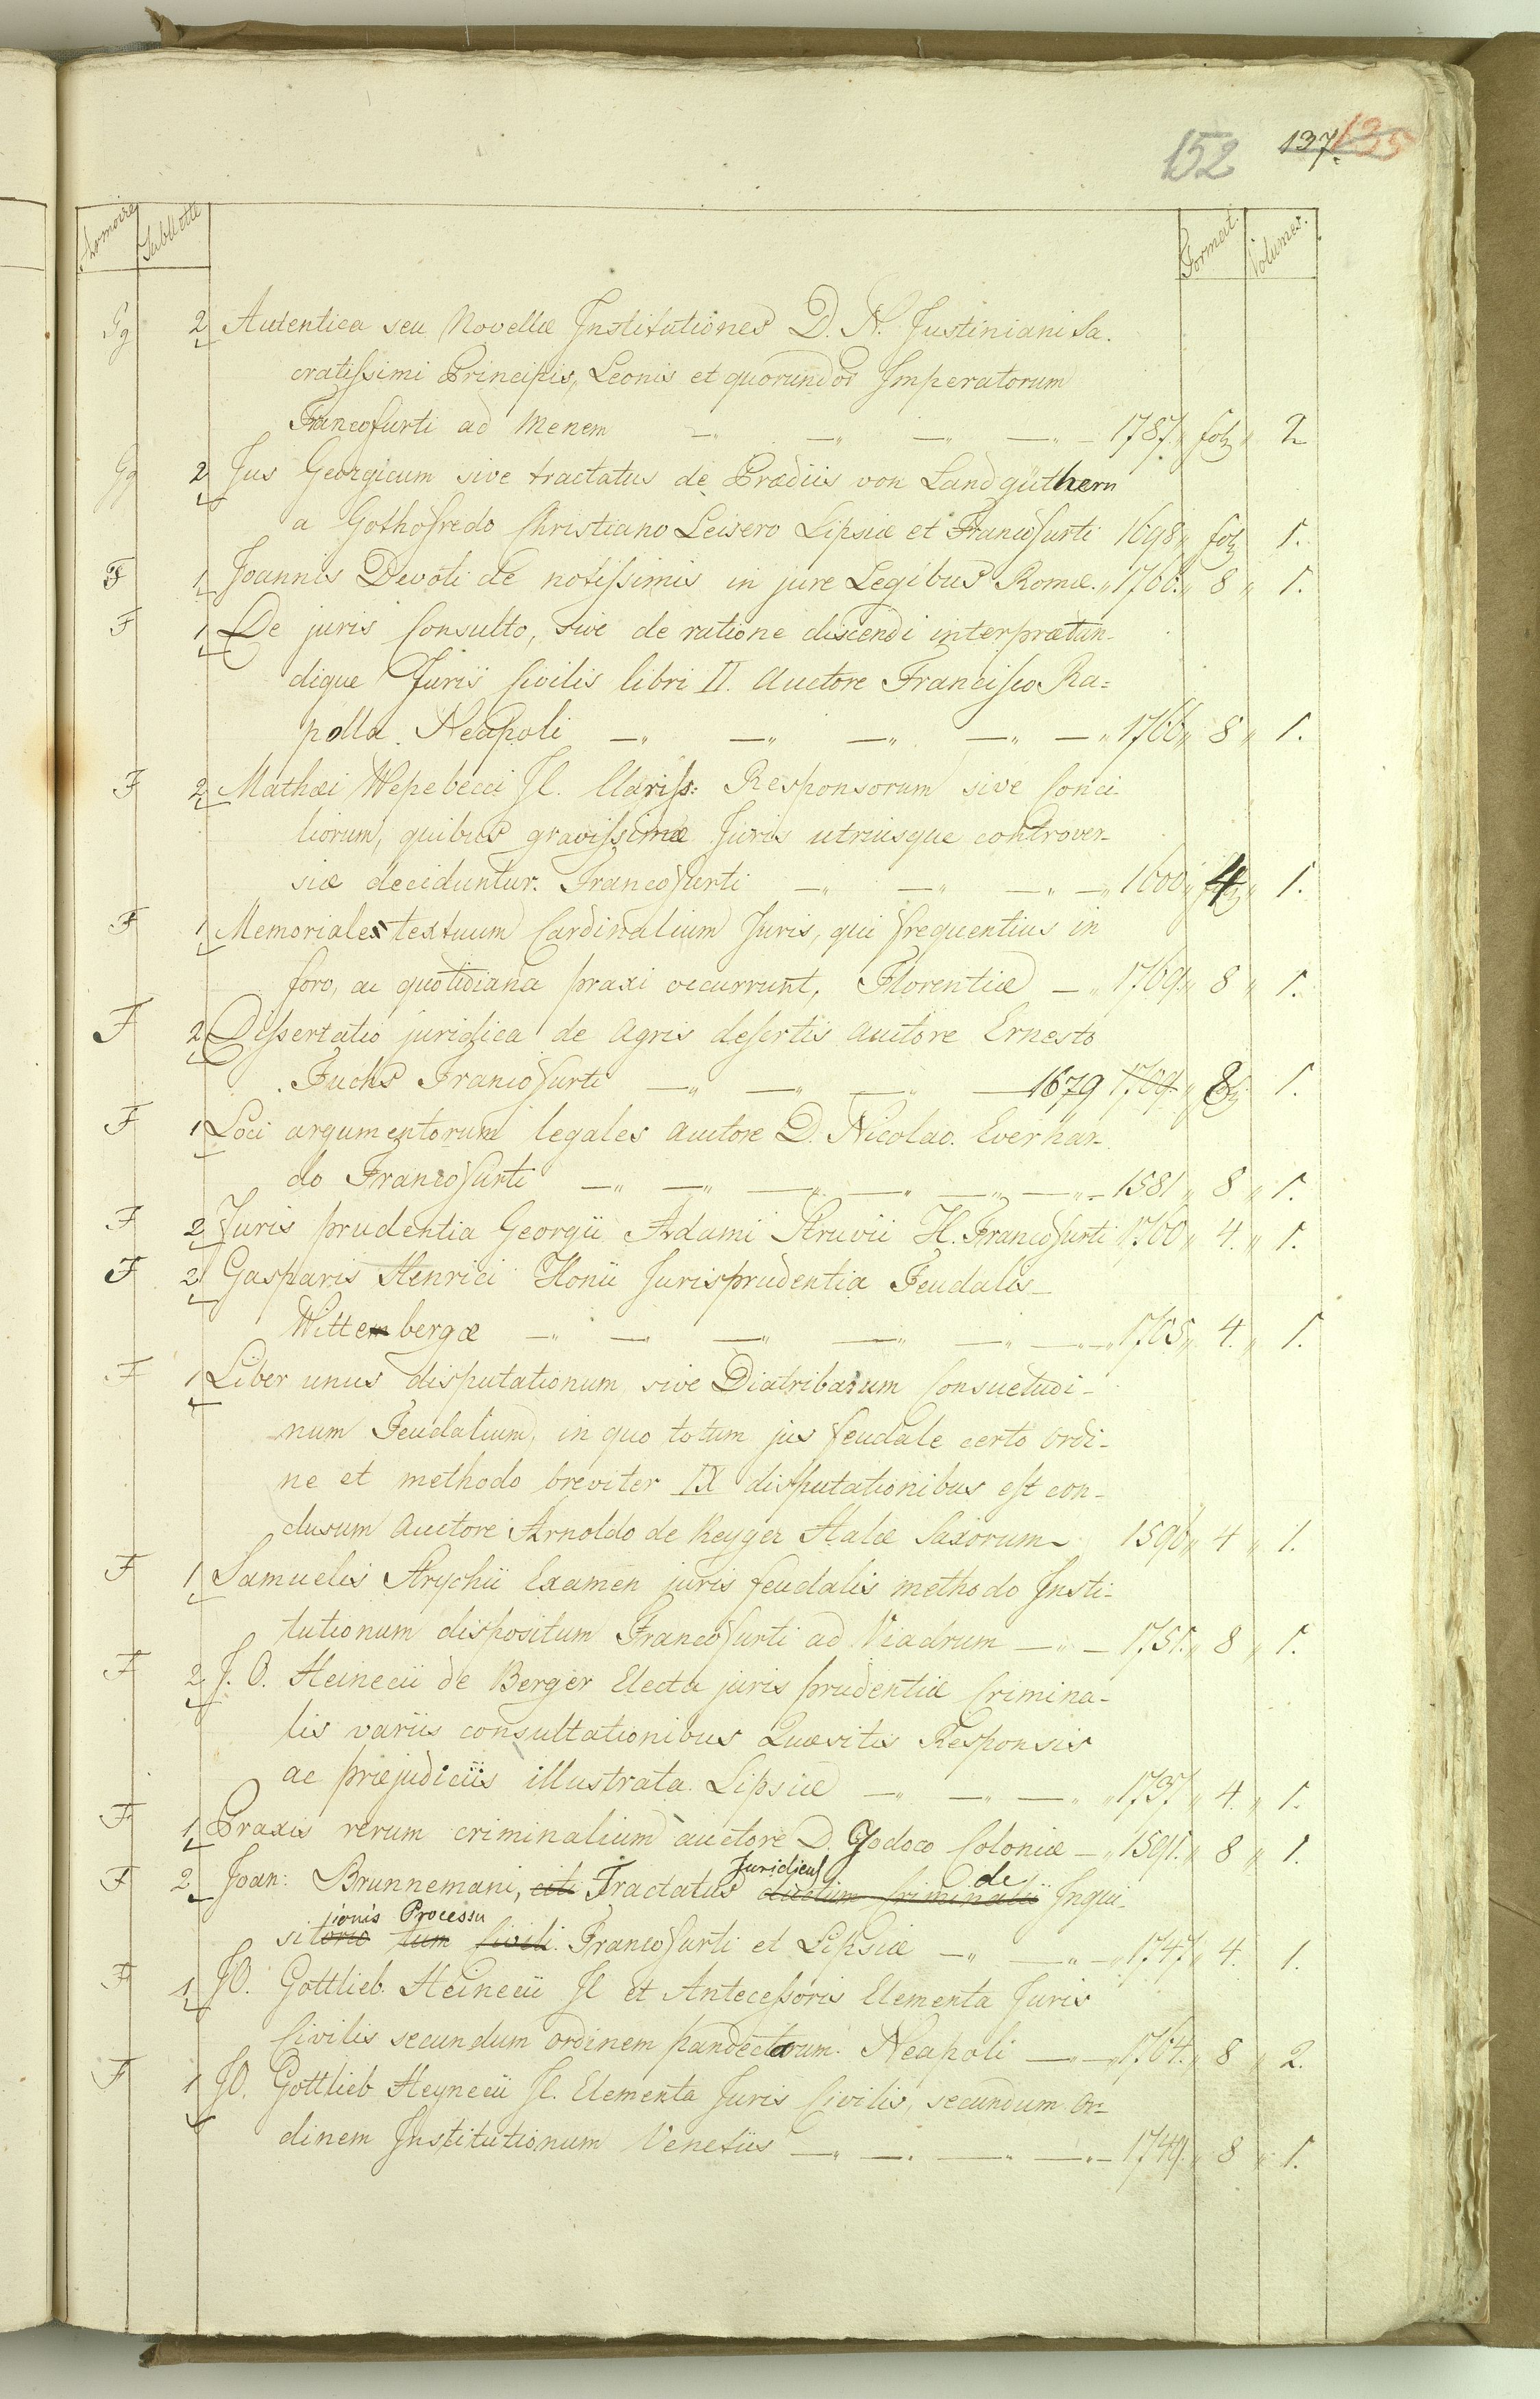 152 137. 135
Armoire Tablette Format. Volumes.
Gg 2 Autentica seu Novellæ Institutiones D. N. Justiniani Sa.
cratissimi Principis, Leonis et quorundos Imperatorum
Francofurti ad Menem —„ —„ —„ —„ — 1787„ fol „ 2
Gg 2 Jus Georgicum sive tractatus de Prædiis von Landgüthern
a Gothofredo Christiano Leisero Lipsiæ et Francofurti 1698„ fol 1.
F 1 Joannis Devoti de notissimis in jure Legibus Romæ.„ 1766.„ 8 „ 1.
F 1 De juris Consulto, sive de ratione discendi interprætan-
dique Juris Civilis libri II. Auctore Francisco Ra=
polla. Neapoli —„ —„ —„ —„ —„ 1766„ 8 „ 1.
F 2 Mathæi Wepebecci Jl. Clariss: Responsorum sive Conci-
liorum, quibus gravissimæ Juris utriusque controver-
siæ deciduntur. Francofurti —„ —„ —„ —„ 1600„ 4 „ 1.
F 1 Memoriales textuum Cardinalium Juris, qui frequentius in
foro, ac quotidiana praxi occurrunt, Florentiæ —„ 1769.„ 8 „ 1.
F 2 Dissertatio juridica de agris desertis auctore Ernesto
Fuchs Francofurti —„ —„ —„ — 1679 1709 „ 8 1.
F 1 Loci argumentorum legales auctore D. Nicolao Everhar-
do Francofurti —„ —„ —„ —„ —„ —„ — 1581 „ 8 „ 1.
F 2 Juris prudentia Georgii Adami Struvii Jl. Francofurti 1760 „ 4. „ 1.
F 2 Gasparis Henrici Honii Jurisprudentia Feudalis
Wittembergæ —„ —„ —„ —„ —„ —„ 1705„ 4. „ 1.
F 1 Liber unus disputationum sive Diatribarum Consuetudi-
num Feudalium, in quo totum jus feudale certo ordi-
ne et methodo breviter IX disputationibus est con-
clusum Auctore Arnoldo de Reyger Halæ Saxorum 1596„ 4 „ 1.
F 1 Samuelis Strychii Examen juris feudalis methodo Insti-
tutionum dispositum Francofurti ad Viadrum —„ — 1751.„ 8 „ 1.
F 2 J. O. Heinecii de Berger Electa juris prudentiæ Crimina-
lis variis consultationibus Quæsitis Responsis
ac præjudiciis illustrata. Lipsiæ —„ —„ —„ „ 1737 „ 4. „ 1.
F 1 Praxis rerum criminalium auctore D. Jodoco Coloniæ —„ 1591.„ 8 „ 1.
Juridicus de
F 2 Joan: Brunnemani, Tractatus auctum Criminalis Inqui-
sionis Processu
sitorio tum Civili. Francofurti et Lipsiæ —„ —„ —„ 1747„ 4. 1.
F 1 JO. Gottlieb. Heinecii Jl et Antecessoris Elementa Juris
Civilis secundum ordinem pandectarum. Neapoli —„ —„ 1764.„ 8 „ 2.
F 1 JO. Gottlieb Heynecii Jl. Elementa Juris Civilis, secundum or-
dinem Institutionum Venetiis —„ —. —„ —„ — 1749.„ 8 „ 1.